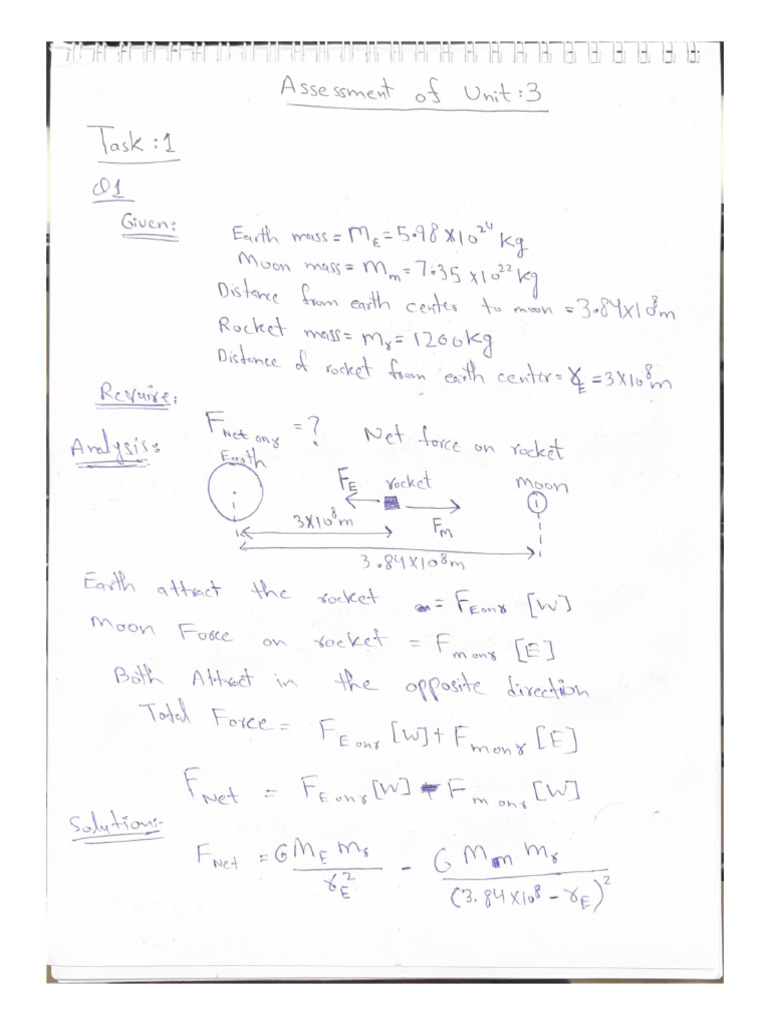 Assessment of Unit:3
Task:1
Q1
Given:
Earth mass = M_E = 5.98 X 10^24 kg
Moon mass = M_m = 7.35 x 10^22 kg
Distance from earth center to moon = 3.84 x 10^8 m
Rocket mass = m_r = 1200 kg
Distance of rocket from earth center = r_E = 3 X 10^8 m
Require:
F_Net on r = ? Net force on rocket
Analysis:
Earth
F_E rocket moon
F_m
3X10^8 m
3.84X10^8 m
Earth attract the rocket = F_E on r [W]
Moon Force on rocket = F_m on r [E]
Both Attract in the opposite direction
Total Force = F_E on r [W] + F_m on r [E]
F_Net = F_E on r [W] - F_m on r [W]
Solution:-
F_Net = G M_E m_r / r_E^2 - G M_m m_r / (3.84 X 10^8 - r_E)^2